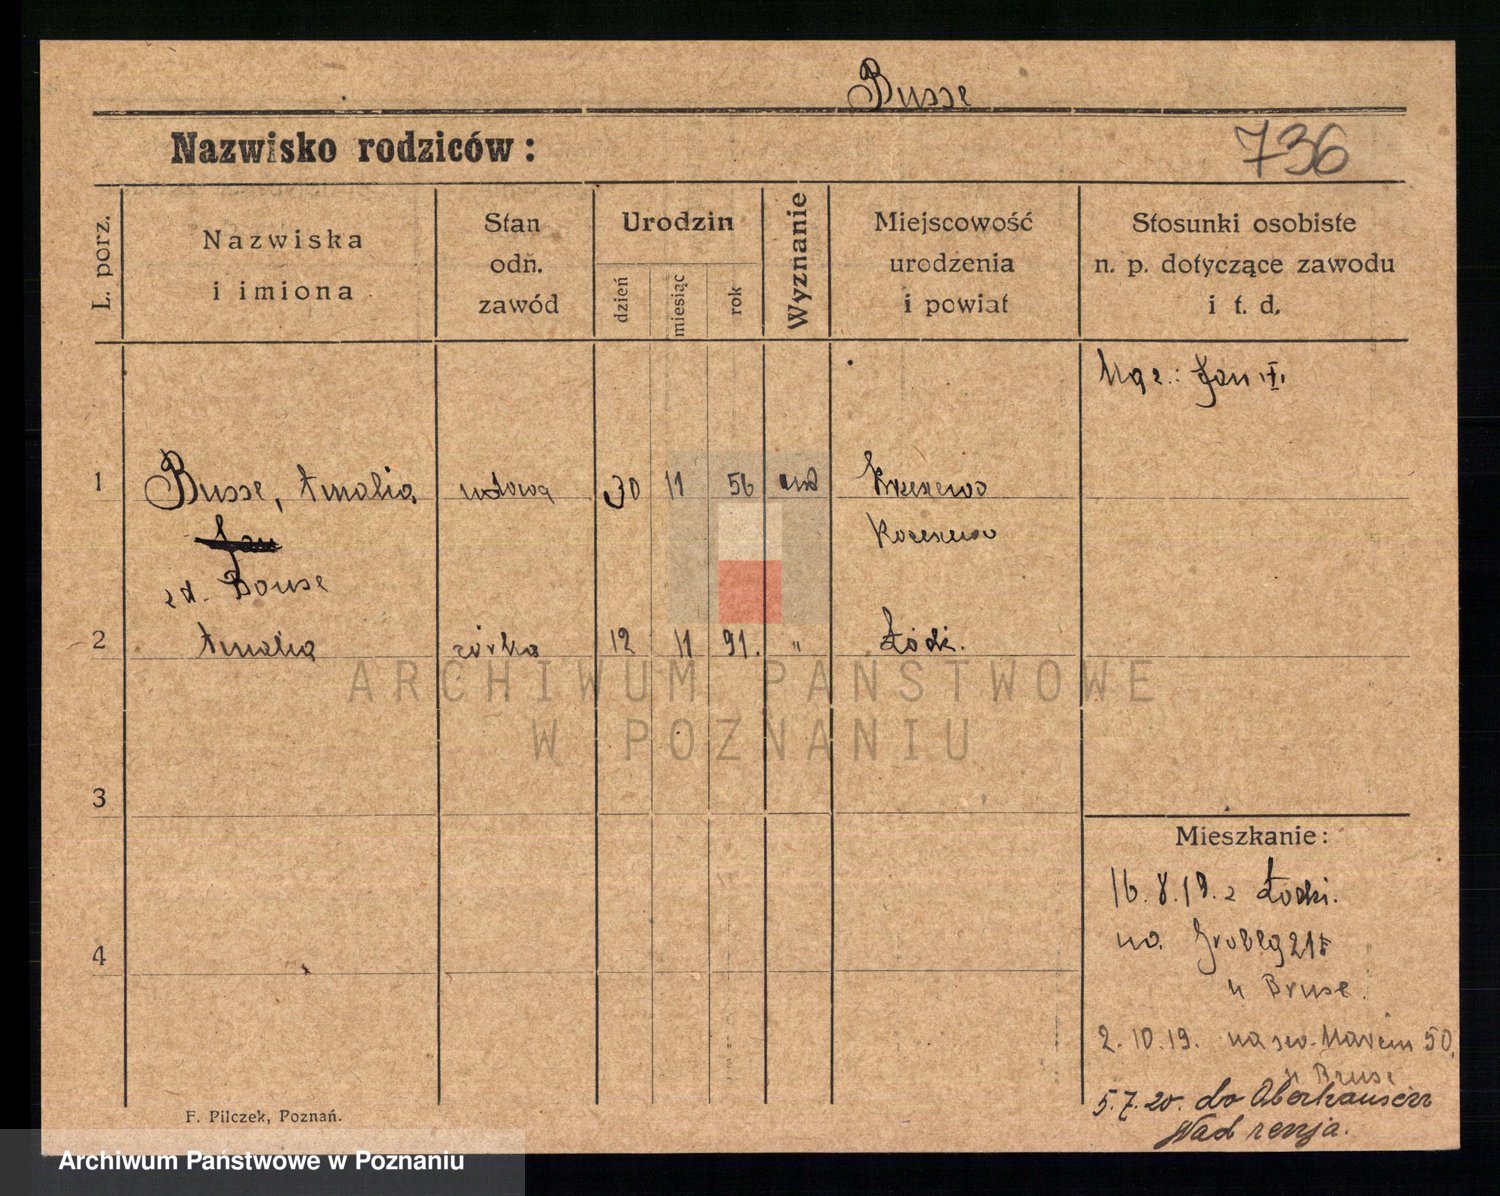 Busse
Nazwisko rodziców:
736
L. porz.
Nazwiska
i imiona
Stan
odn.
zawód
Urodzin
dzień
miesiąc
rok
Wyznanie
Miejscowość
urodzenia
i powiat
Stosunki osobiste
n. p. dotyczące zawodu
i t. d.
Jan
1 Busse, Amalia wdowa 30 11 56
Jan
Bouse
2 Amalia córka 12 11 91. " Łódź.
3
4
Mieszkanie:
16.8.19. z Łodzi.
na
u Bruse.
2.10.19. na św. Marcin 50.
u Bruse
5.7.20. do Oberhausen
Nadrenja.
F. Pilczek, Poznań.
ARCHIWUM PAŃSTWOWE
W POZNANIU
Archiwum Państwowe w Poznaniu